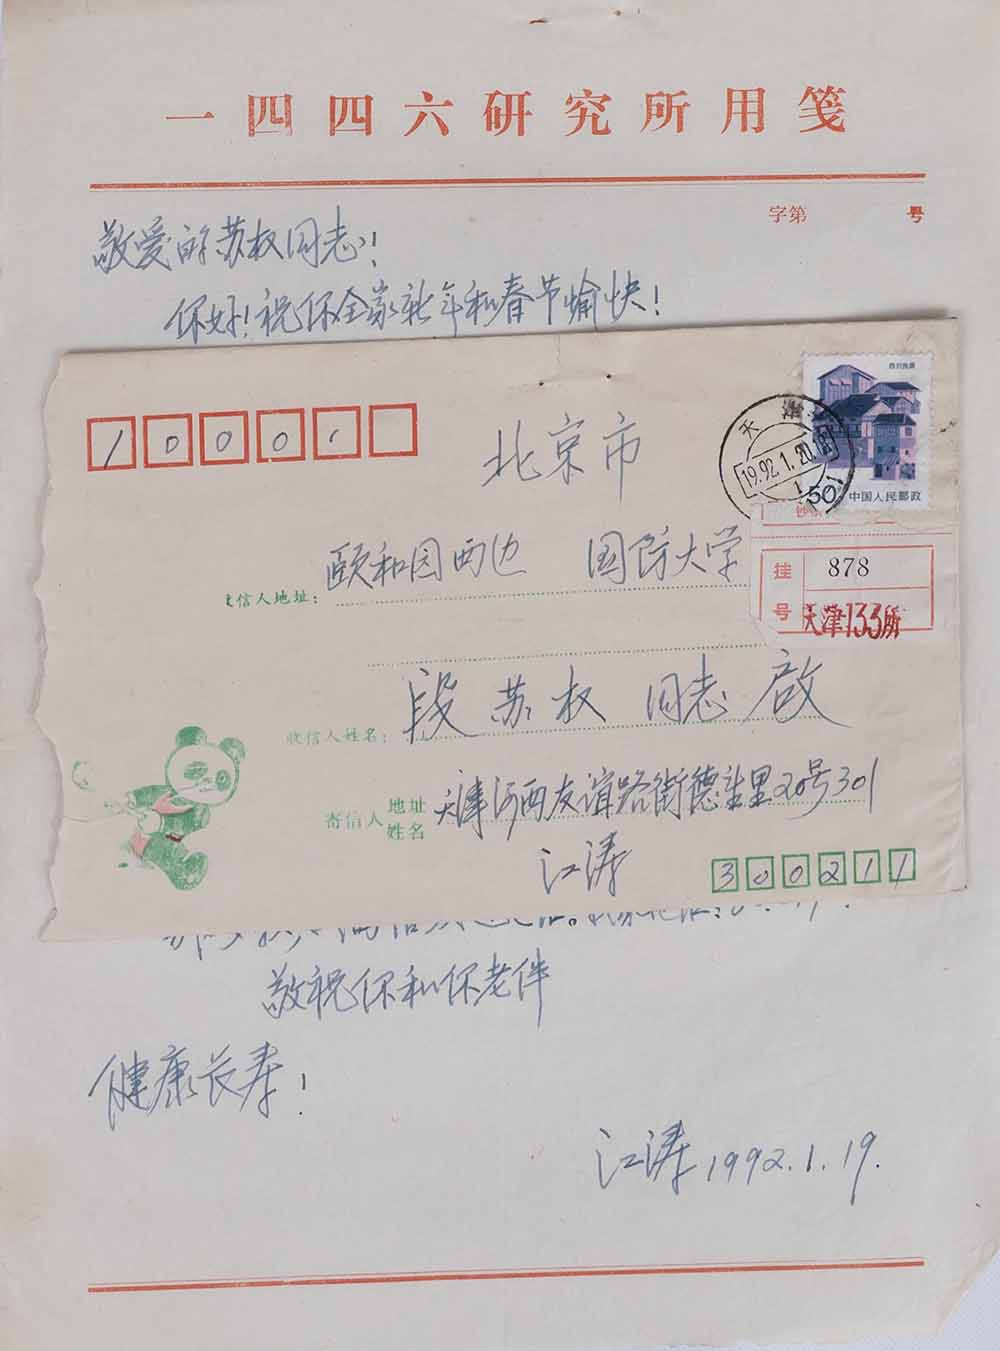 一四四六研究所用笺
字第 号
敬爱的苏权同志！
你好！祝你全家新年和春节愉快！
四川民居
50 中国人民邮政
天津
1992.1.20.18
10000
北京市
挂号 878
天津133所
收信人地址： 颐和园西边 国防大学
收信人姓名： 段苏权 同志 启
寄信人 地址 姓名
天津河西友谊路街德望里20号301
江涛
300211
敬祝你和你老伴
健康长寿！
江涛1992.1.19.